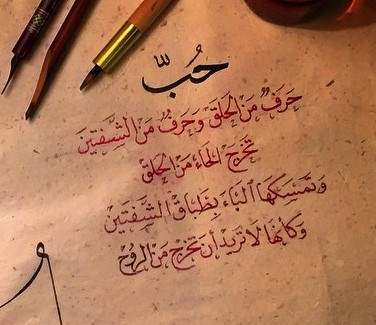 حُبّ
حَرفٌ مَنَ الحَلقْ وَحَرفٌ مَنَ الشَّفتَينْ
تَخرجَ الحَاءَ مَنَ الحلقْ
وَتَمَسِكهَا البَاءَ بِطبَاقْ الشَّفَتَينْ
وَكَأنهَا لَا تَريدَ أنْ تَخرجَ مَنَ الرُّوحْ
و